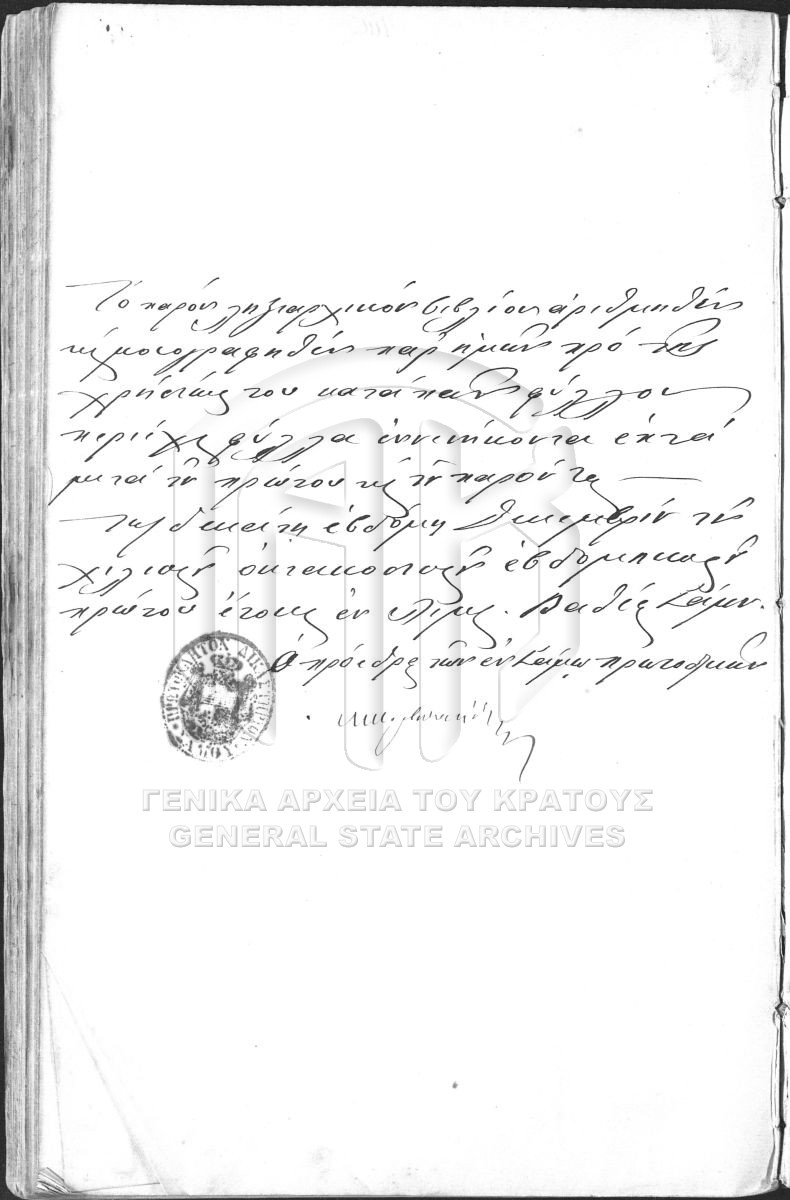 Τὸ παρὸν ληξιαρχικὸν βιβλίον ἀριθμηθὲν
καὶ μονογραφηθὲν παρ' ἡμῶν πρὸ τῆς
χρήσεώς του κατὰ πᾶν φύλλον
περιέχει φύλλα ἐννενήκοντα ἑπτὰ
μετὰ τοῦ πρώτου καὶ τοῦ παρόντος
Τῇ δεκάτῃ ἑβδόμῃ Δεκεμβρίου τοῦ
χιλιοστοῦ ὀκτακοσιοστοῦ ἑβδομηκοστοῦ
πρώτου ἔτους ἐν Λιμ. Βαθέος Σάμου.
Ὁ πρόεδρος τῶν ἐν Σάμῳ πρωτοδικῶν
ΓΕΝΙΚΑ ΑΡΧΕΙΑ ΤΟΥ ΚΡΑΤΟΥΣ
GENERAL STATE ARCHIVES